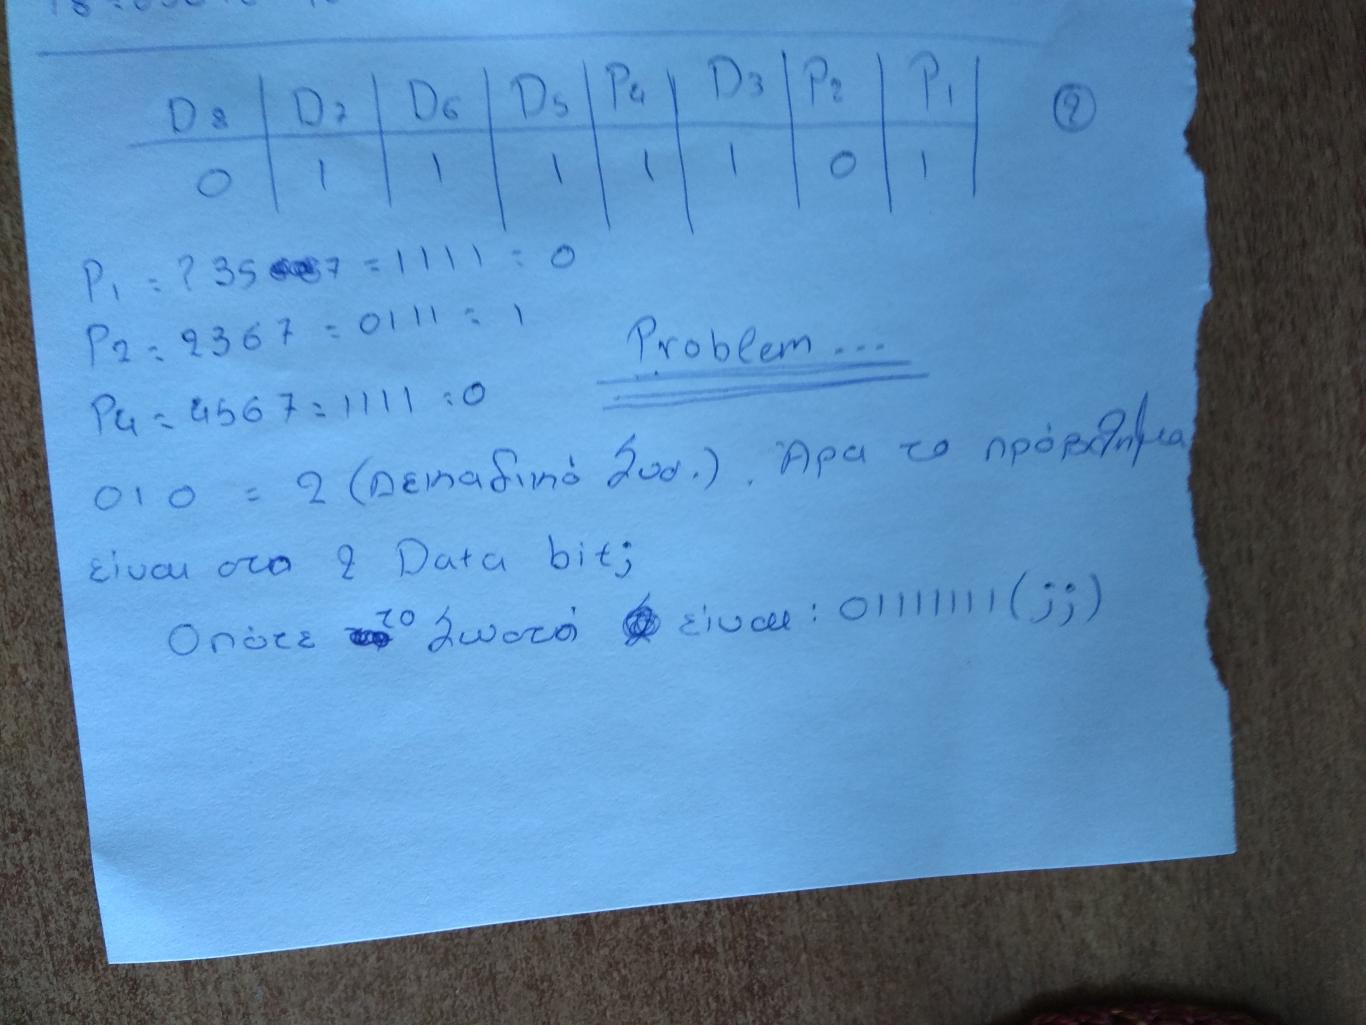 D8 D7 D6 D5 P4 D3 P2 P1 2
0 1 1 1 1 1 0 1
P1 = ? 35 7 = 1111 = 0
P2 = 2367 = 0111 = 1
Problem...
P4 = 4567 = 1111 = 0
010 = 2 (Δεκαδικό Συσ.). Άρα το πρόβλημα
είναι στο 2 Data bit;
Οπότε το Σωστό είναι: 01111111(;;)